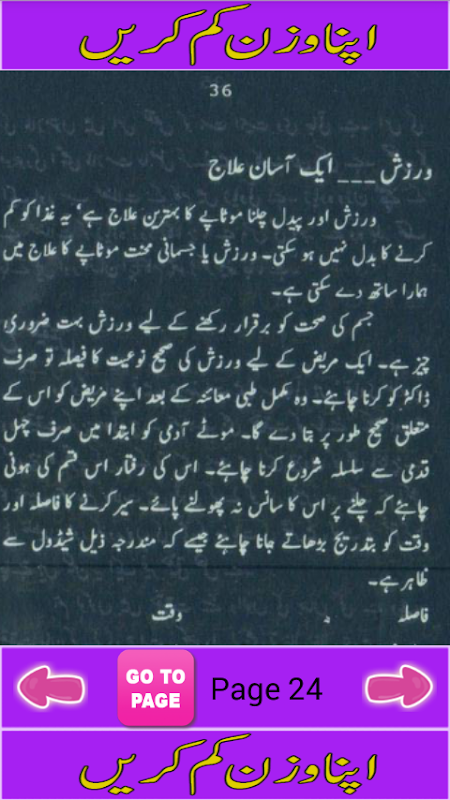 اپنا وزن کم کریں
36
ورزش ___ ایک آسان علاج
ورزش اور پیدل چلنا موٹاپے کا بہترین علاج ہے‘ یہ غذا کو کم
کرنے کا بدل نہیں ہو سکتی۔ ورزش یا جسمانی محنت موٹاپے کا علاج میں
ہمارا ساتھ دے سکتی ہے۔
جسم کی صحت کو برقرار رکھنے کے لیے ورزش بہت ضروری
چیز ہے۔ ایک مریض کے لیے ورزش کی صحیح نوعیت کا فیصلہ تو صرف
ڈاکٹر کو کرنا چاہئے۔ وہ مکمل طبی معائنہ کے بعد اپنے مریض کو اس کے
متعلق صحیح طور پر بتا دے گا۔ موٹے آدمی کو ابتدا میں صرف چہل
قدمی سے سلسلہ شروع کرنا چاہئے۔ اس کی رفتار اس قسم کی ہونی
چاہئے کہ چلنے پر اس کا سانس نہ پھولنے پائے۔ سیر کرنے کا فاصلہ اور
وقت کو بتدریج بڑھاتے جانا چاہئے جیسے کہ مندرجہ ذیل شیڈول سے
ظاہر ہے۔
فاصلہ وقت
GO TO
PAGE
Page 24
اپنا وزن کم کریں